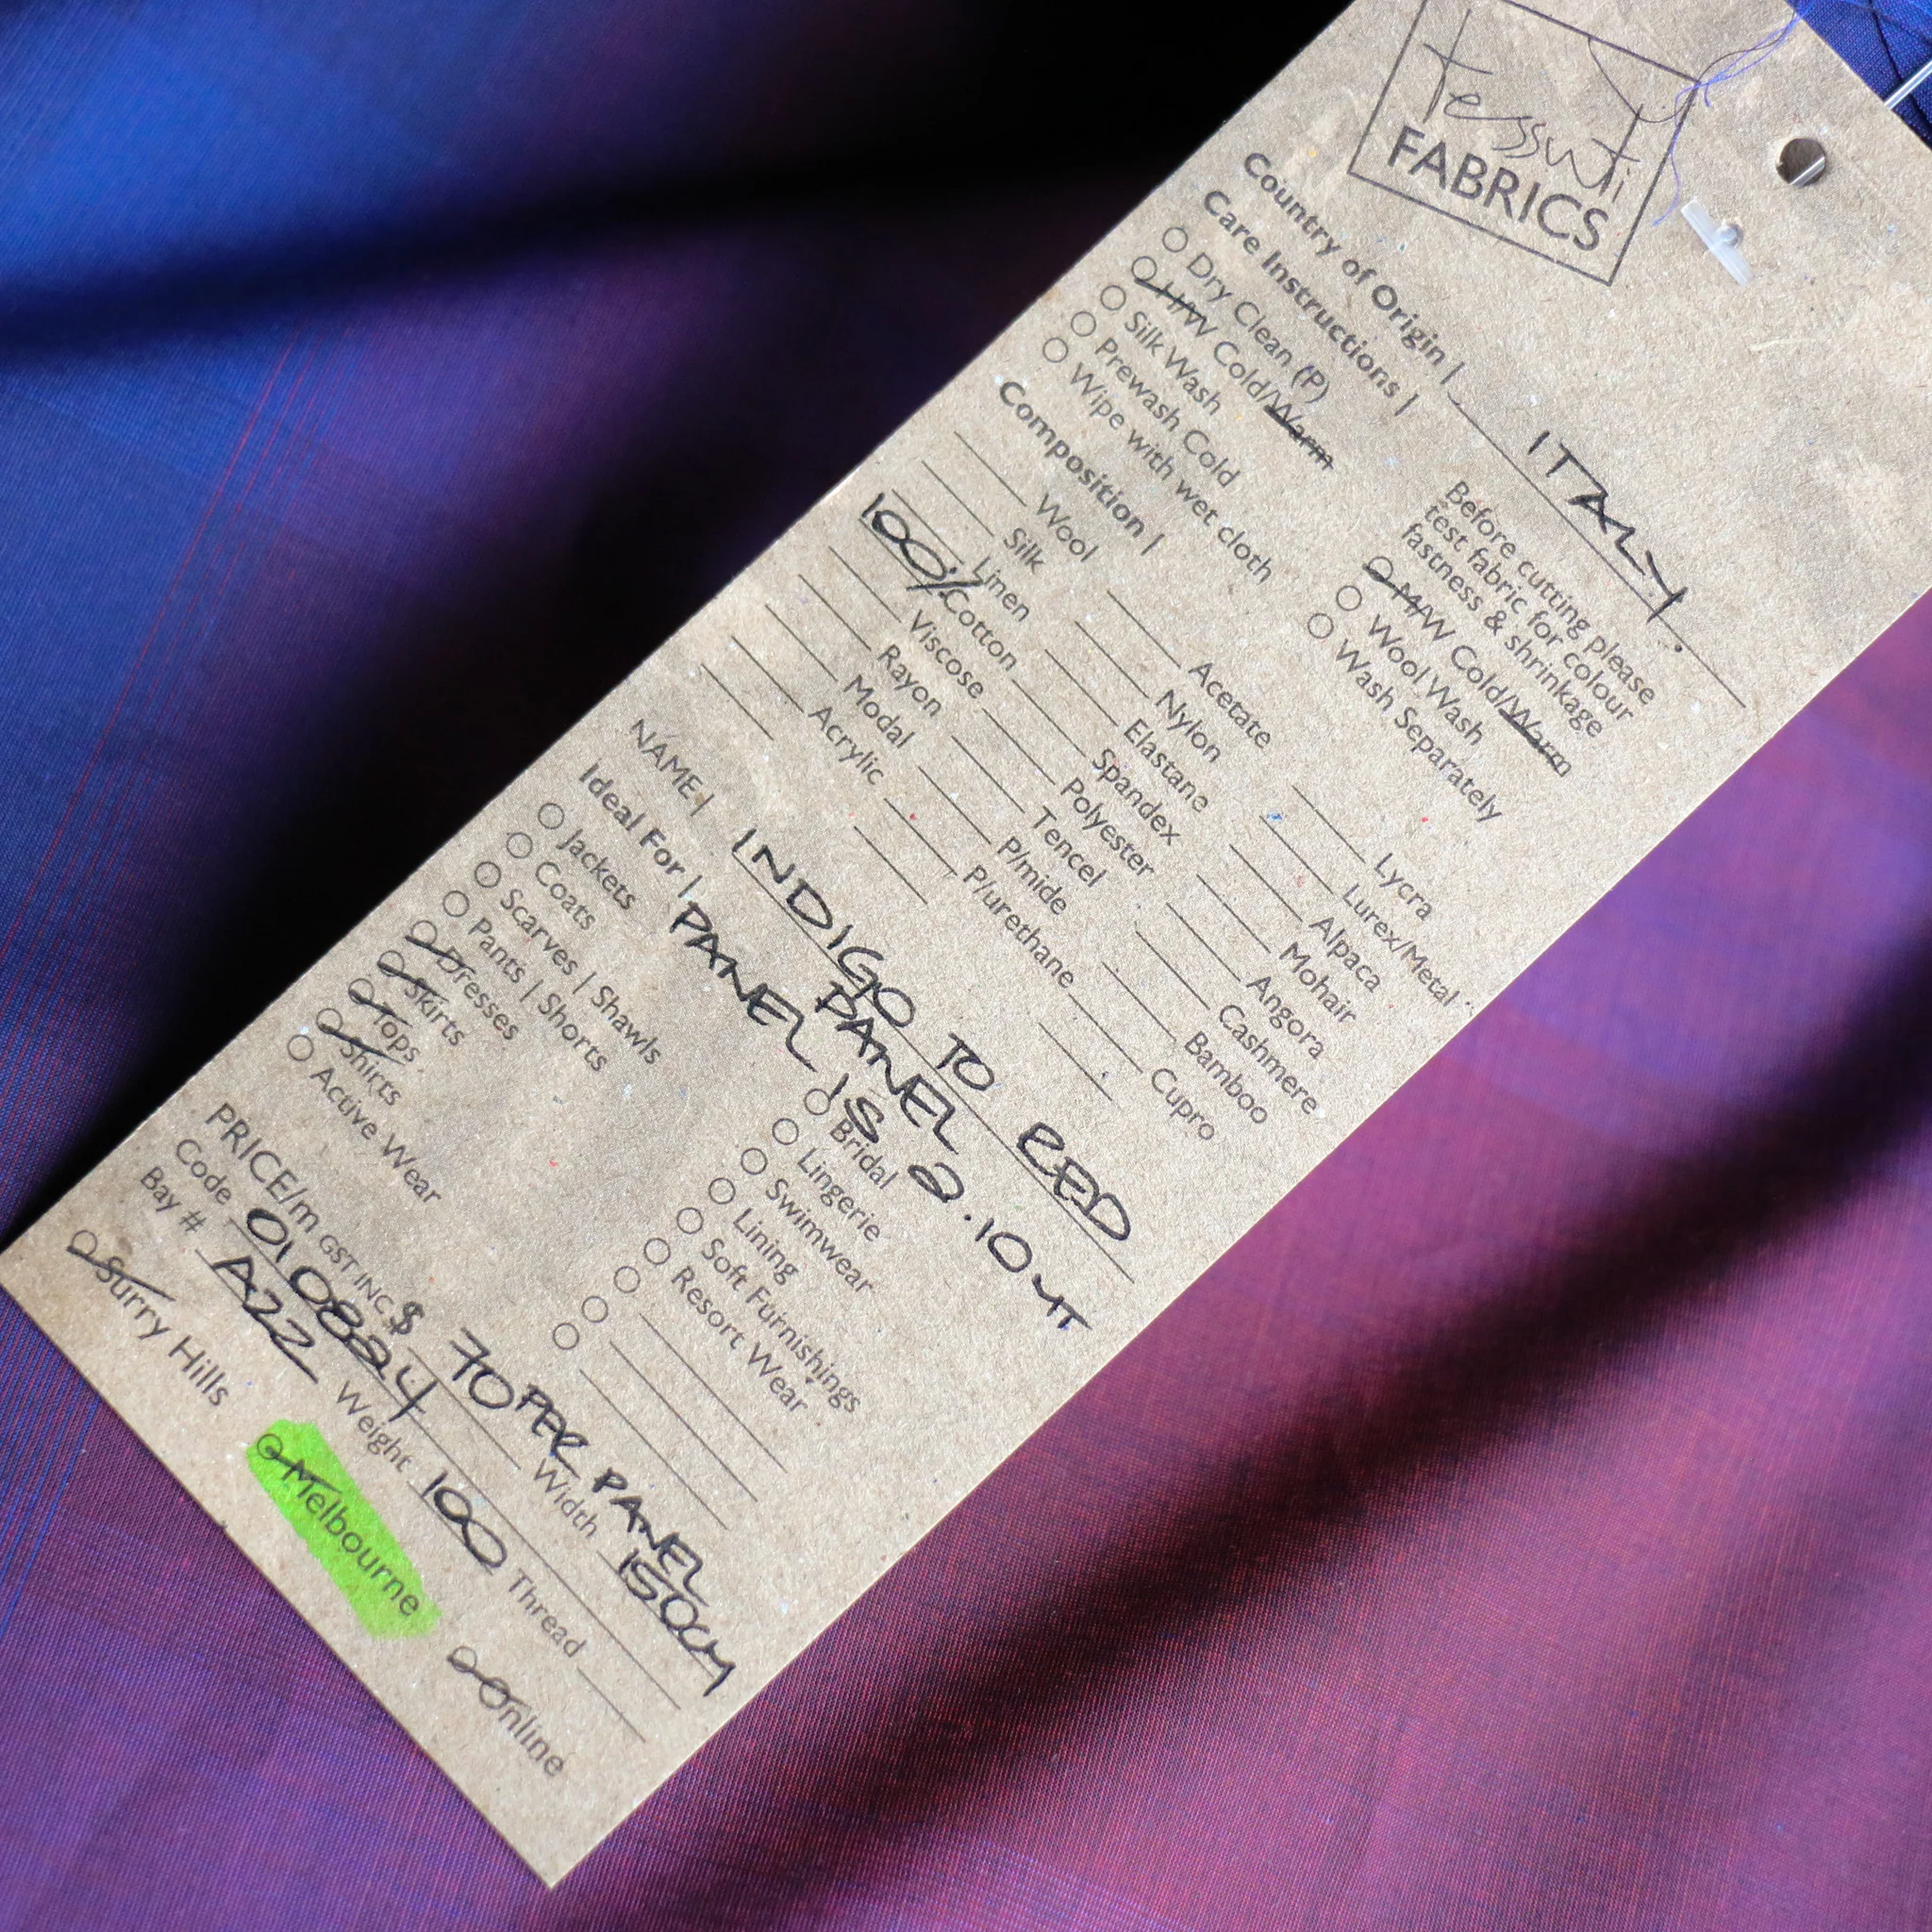 tessuti
FABRICS
Country of Origin | ITALY
Care Instructions |
Before cutting please
test fabric for colour
fastness & shrinkage
Dry Clean (P)
H/W Cold/Warm
Silk Wash
Prewash Cold
Wipe with wet cloth
M/W Cold/Warm
Wool Wash
Wash Separately
Composition |
Wool
Silk
Linen
100% Cotton
Viscose
Rayon
Modal
Acrylic
Acetate
Nylon
Elastane
Spandex
Polyester
Tencel
P/mide
P/urethane
Lycra
Lurex/Metal
Alpaca
Mohair
Angora
Cashmere
Bamboo
Cupro
NAME | INDIGO TO RED
PANEL
Ideal For | PANEL IS 2.10MT
Jackets
Coats
Scarves | Shawls
Pants | Shorts
Dresses
Skirts
Tops
Shirts
Active Wear
Bridal
Lingerie
Swimwear
Lining
Soft Furnishings
Resort Wear
PRICE/m GST INC $ 70 PER PANEL
Code 010824 Width 150CM
Bay # A22 Weight 100 Thread
Surry Hills Melbourne Online